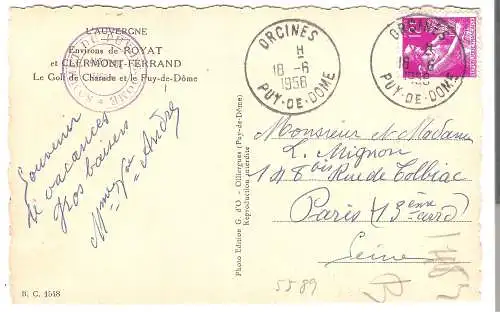 L'AUVERGNE
Environs de ROYAT
et CLERMONT-FERRAND
Le Golf de Charade et le Puy-de-Dôme
Souvenir
de vacances
Gros baisers
André
B. C. 1518
Photo Edition G. d'O - Olliergues (Puy-de-Dôme)
Reproduction interdite
ORCINES
H
18 -6
1956
PUY-DE-DOME
ORCINES
H
18 -6
PUY-DE-DOME
Monsieur et Madame
L. Mignon
148 bis Rue de Tolbiac
Paris (13ème arrd)
Seine
5589